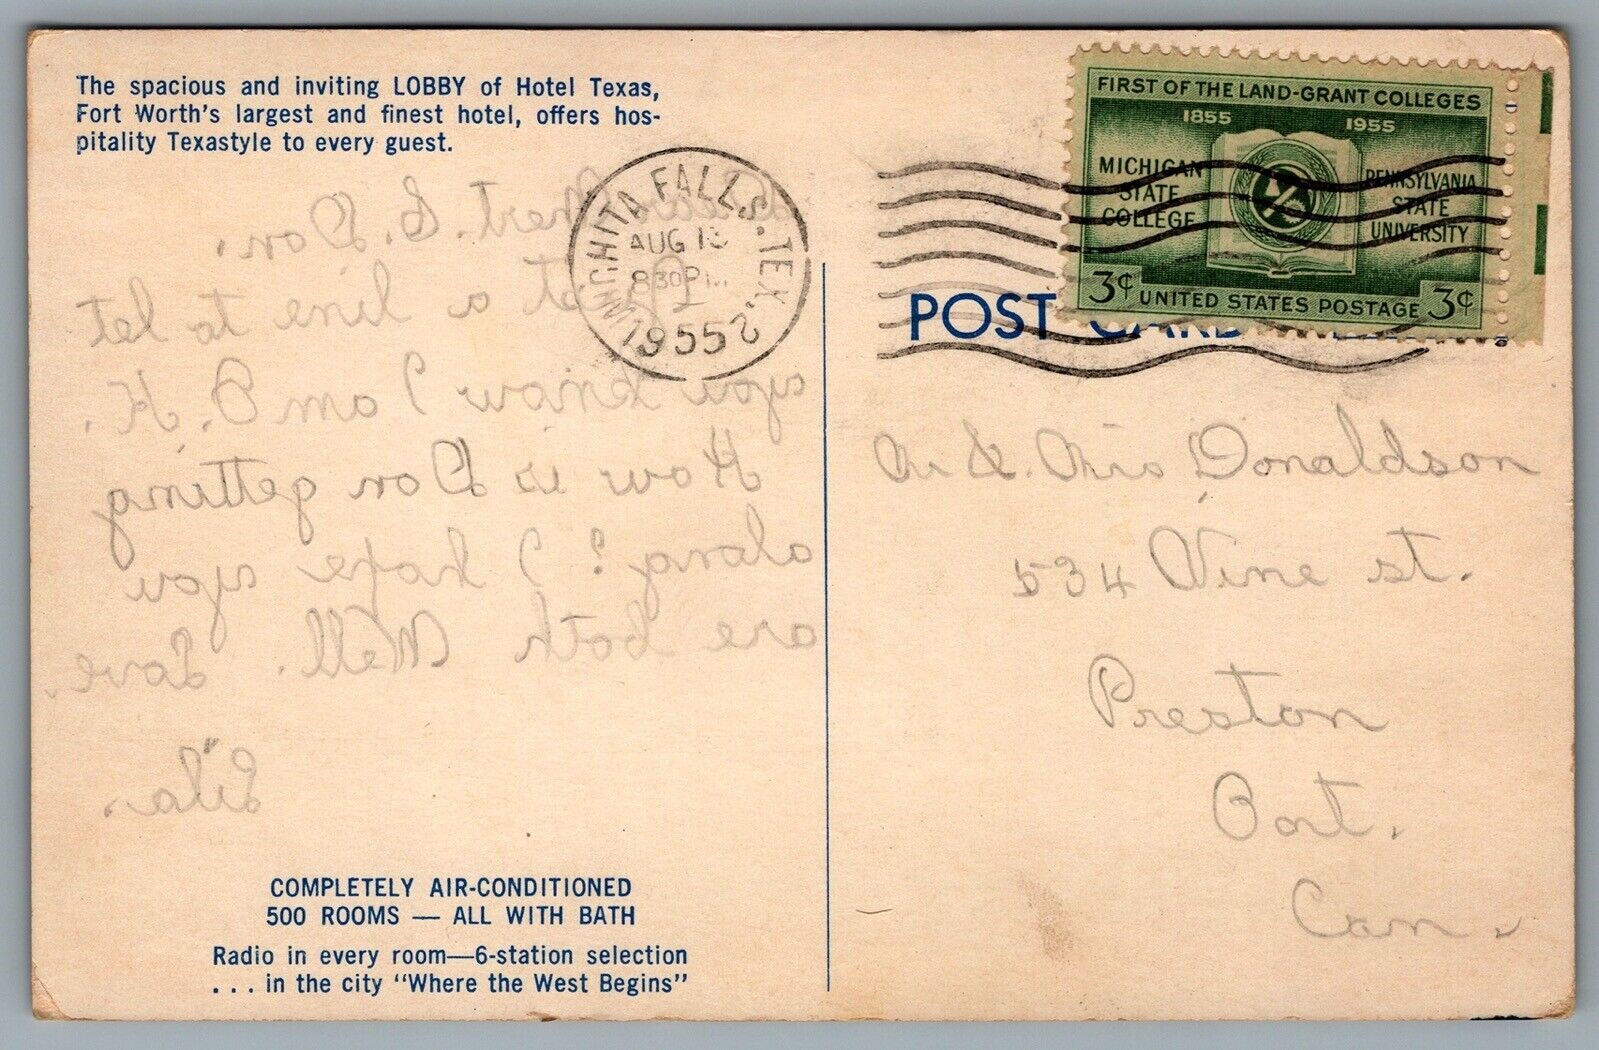 The spacious and inviting LOBBY of Hotel Texas,
Fort Worth's largest and finest hotel, offers hos-
pitality Texastyle to every guest.
WICHITA FALLS. TEX. 2
AUG 13
830PM
1955
FIRST OF THE LAND-GRANT COLLEGES
1855 1955
MICHIGAN STATE COLLEGE
PENNSYLVANIA STATE UNIVERSITY
3¢ UNITED STATES POSTAGE 3¢
POST CARD
& Don.
a line to let
you know I am O.K.
How is Don getting
along? I hope you
are both Well. Love.
Eula.
Mr & Mrs Donaldson
534 Vine st.
Preston
Ont.
Can.
COMPLETELY AIR-CONDITIONED
500 ROOMS — ALL WITH BATH
Radio in every room—6-station selection
. . . in the city "Where the West Begins"